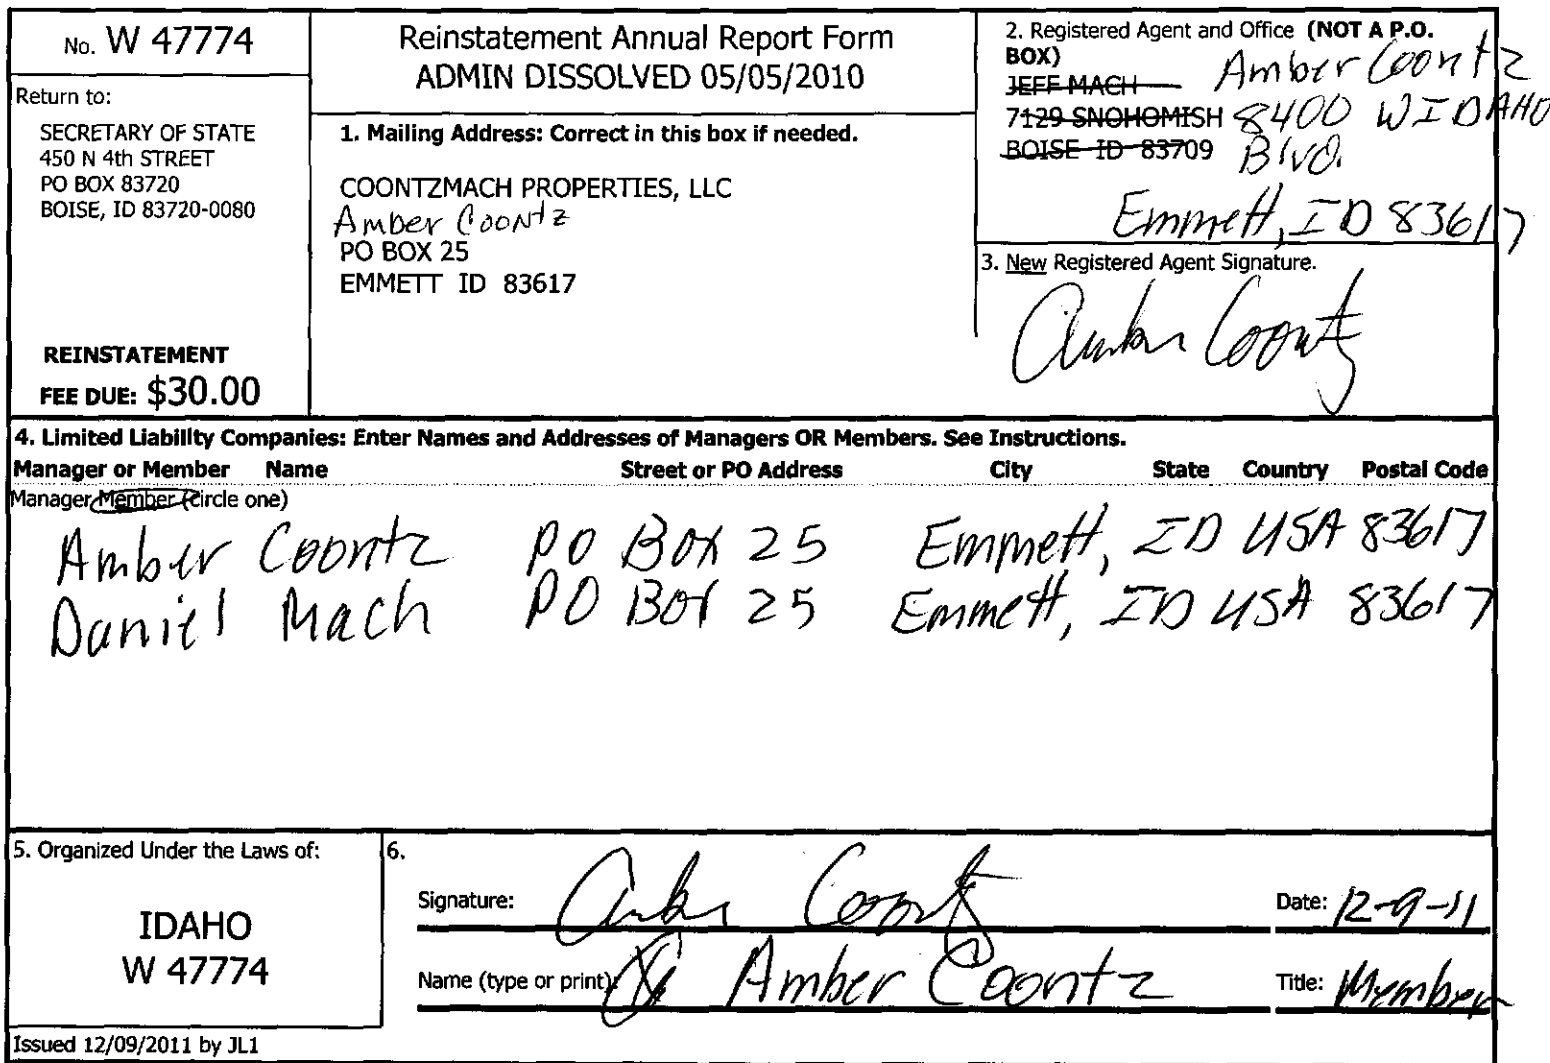 No. W 47774
Return to:
SECRETARY OF STATE
450 N 4th STREET
PO BOX 83720
BOISE, ID 83720-0080
REINSTATEMENT
FEE DUE: $30.00
Reinstatement Annual Report Form
ADMIN DISSOLVED 05/05/2010
1. Mailing Address: Correct in this box if needed.
COONTZMACH PROPERTIES, LLC
Amber Coontz
PO BOX 25
EMMETT ID 83617
2. Registered Agent and Office (NOT A P.O.
BOX)
JEFF MACH
7129 SNOHOMISH
BOISE ID 83709
Amber Coontz
8400 W IDAHO
Blvd.
Emmett, ID 83617
3. New Registered Agent Signature.
Amber Coontz
4. Limited Liability Companies: Enter Names and Addresses of Managers OR Members. See Instructions.
Manager or Member Name Street or PO Address City State Country Postal Code
Manager Member (circle one)
Amber Coontz PO Box 25 Emmett, ID USA 83617
Daniel Mach PO Box 25 Emmett, ID USA 83617
5. Organized Under the Laws of:
IDAHO
W 47774
6.
Signature: Amber Coontz Date: 12-9-11
Name (type or print): Amber Coontz Title: Member
Issued 12/09/2011 by JL1